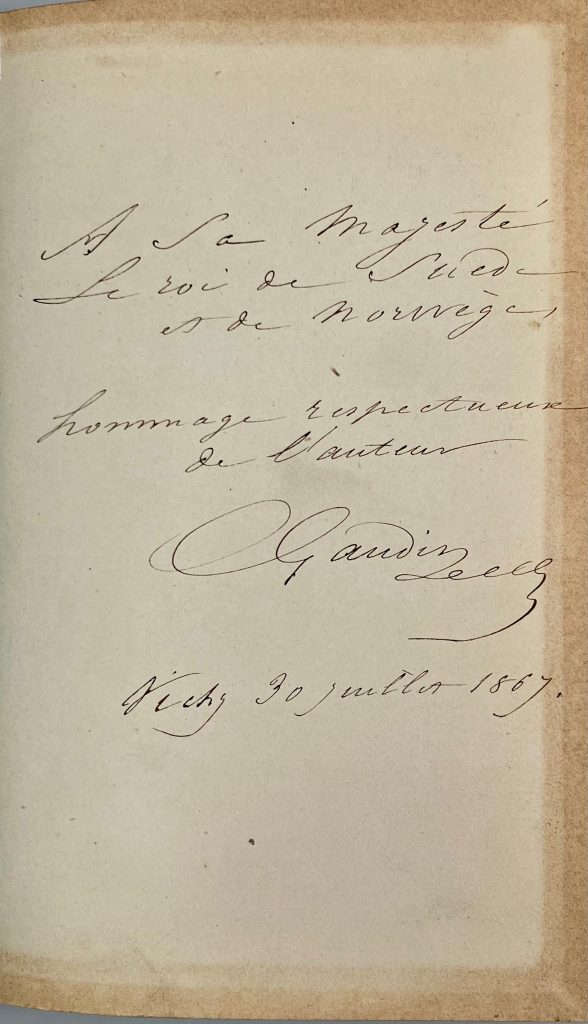 A Sa Majesté
Le roi de Suède
et de Norwège,
hommage respectueux
de l'auteur
Gaudin
Vichy 30 juillet 1867.